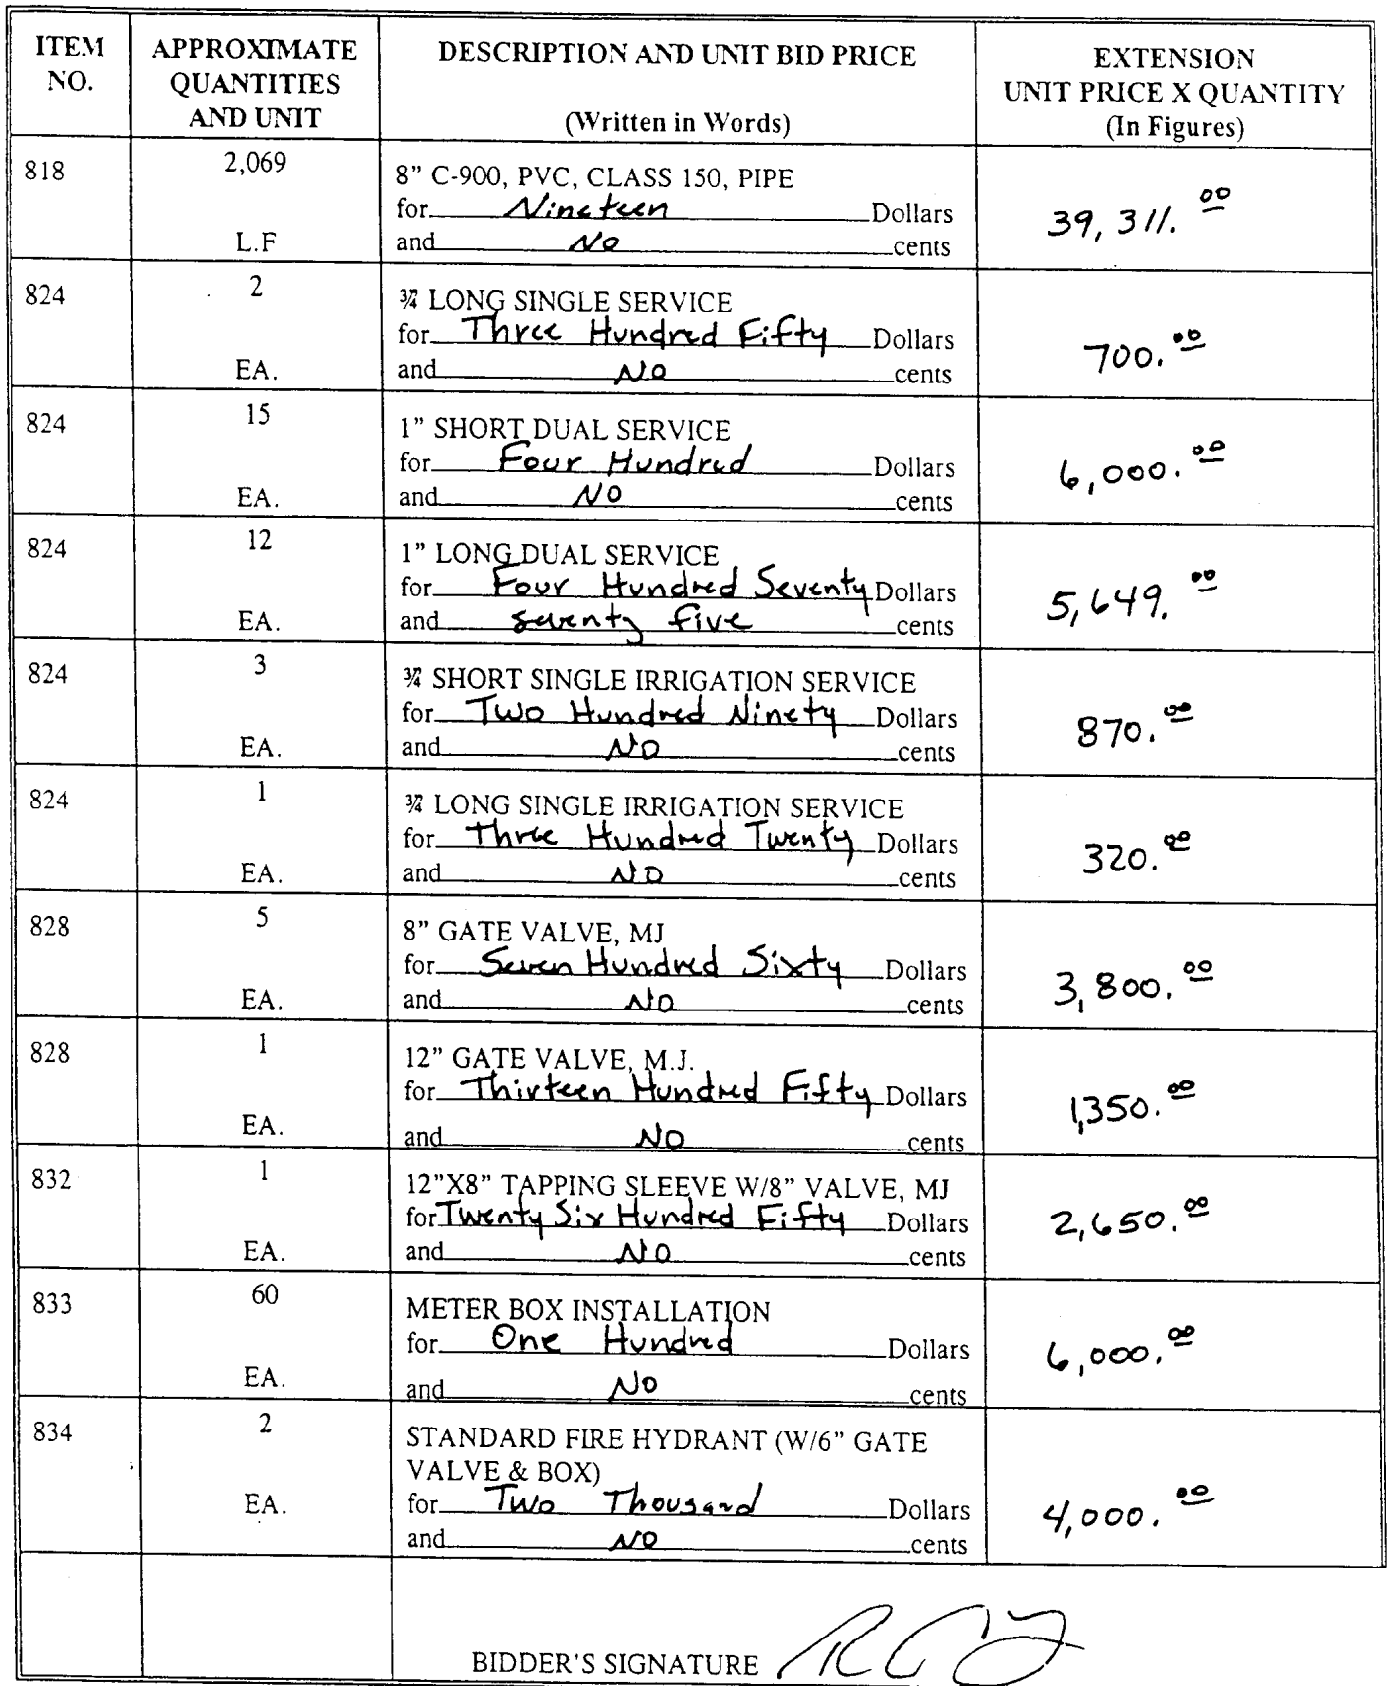 ITEM NO. APPROXIMATE QUANTITIES AND UNIT DESCRIPTION AND UNIT BID PRICE (Written in Words) EXTENSION UNIT PRICE X QUANTITY (In Figures)
818 2,069
8" C-900, PVC, CLASS 150, PIPE
for Nineteen Dollars
39,311.00
L.F and No cents
824 2
¾ LONG SINGLE SERVICE
for Three Hundred Fifty Dollars
700.00
EA. and No cents
824 15
1" SHORT DUAL SERVICE
for Four Hundred Dollars
6,000.00
EA. and NO cents
824 12
1" LONG DUAL SERVICE
for Four Hundred Seventy Dollars
5,649.00
EA. and seventy five cents
824 3
¾ SHORT SINGLE IRRIGATION SERVICE
for Two Hundred Ninety Dollars
870.00
EA. and NO cents
824 1
¾ LONG SINGLE IRRIGATION SERVICE
for Three Hundred Twenty Dollars
320.00
EA. and NO cents
828 5
8" GATE VALVE, MJ
for Seven Hundred Sixty Dollars
3,800.00
EA. and No cents
828 1
12" GATE VALVE, M.J.
for Thirteen Hundred Fifty Dollars
1,350.00
EA. and No cents
832 1
12"X8" TAPPING SLEEVE W/8" VALVE, MJ
for Twenty Six Hundred Fifty Dollars
2,650.00
EA. and NO cents
833 60
METER BOX INSTALLATION
for One Hundred Dollars
6,000.00
EA. and No cents
834 2
STANDARD FIRE HYDRANT (W/6" GATE
VALVE & BOX)
for Two Thousand Dollars
4,000.00
EA. and NO cents
BIDDER'S SIGNATURE